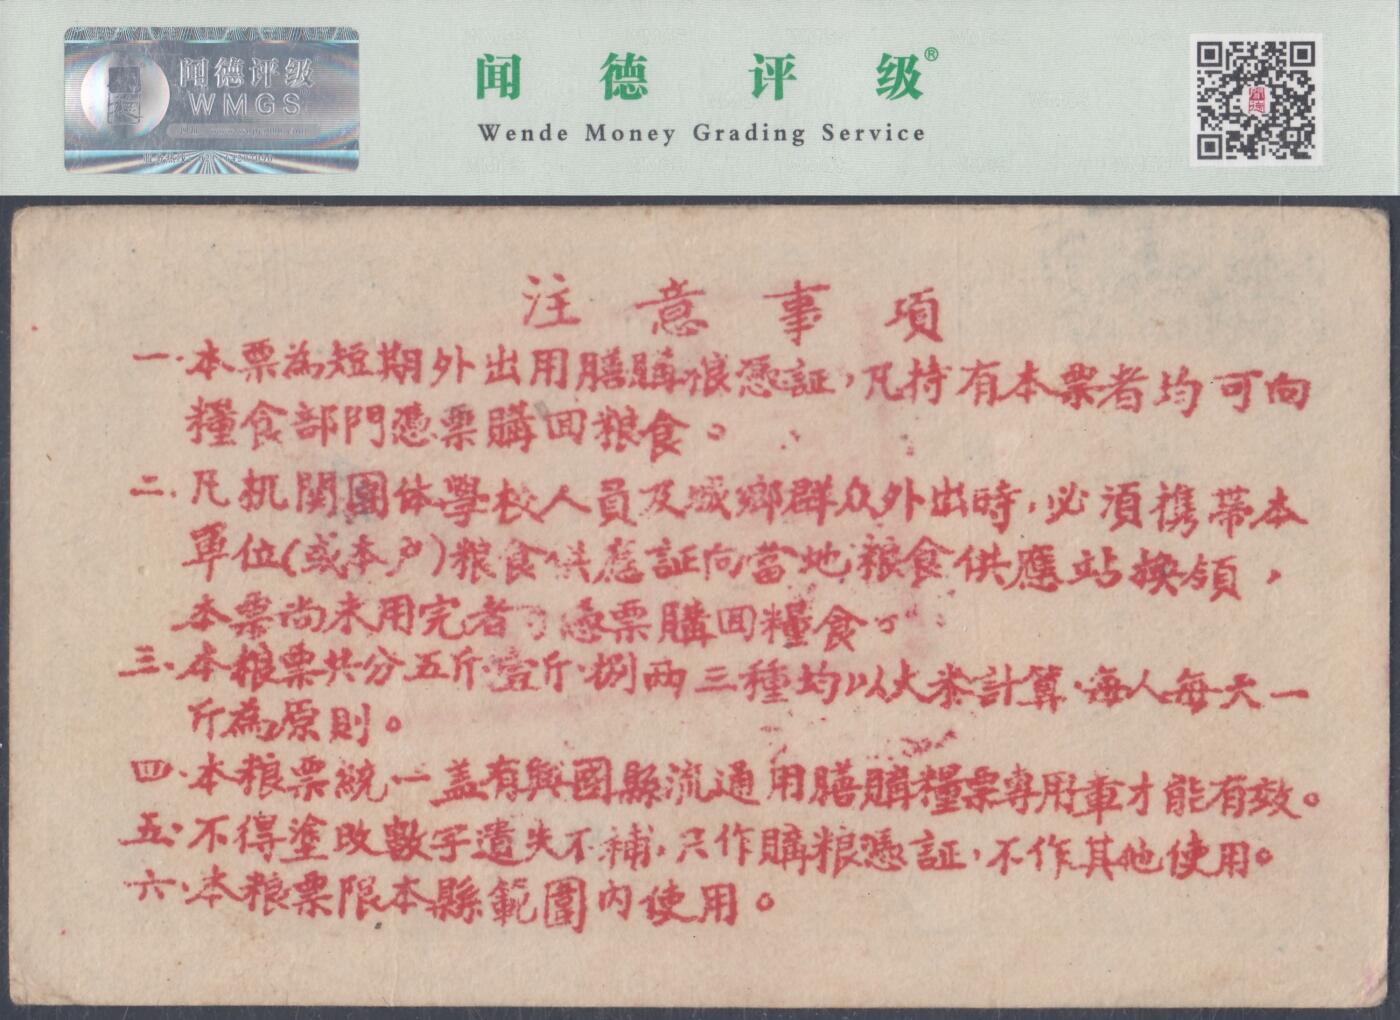 闻德评级®
Wende Money Grading Service
闻德评级
WMGS
注意事項
一.本票為短期外出用膳購粮憑証,凡持有本票者均可向
糧食部門憑票購回粮食。
二.凡机関團体學校人員及城鄉群众外出時,必須携帶本
單位(或本户)粮食供應証向當地粮食供應站換領,
本票尚未用完者可憑票購回糧食。
三.本粮票共分五斤.壹斤.捌兩三種均以大米計算.每人每天一
斤為原則。
四.本粮票統一盖有興國縣流通用膳購糧票專用章才能有效。
五.不得塗改數字遺失不補.只作購粮憑証,不作其他使用。
六.本粮票限本縣範圍內使用。